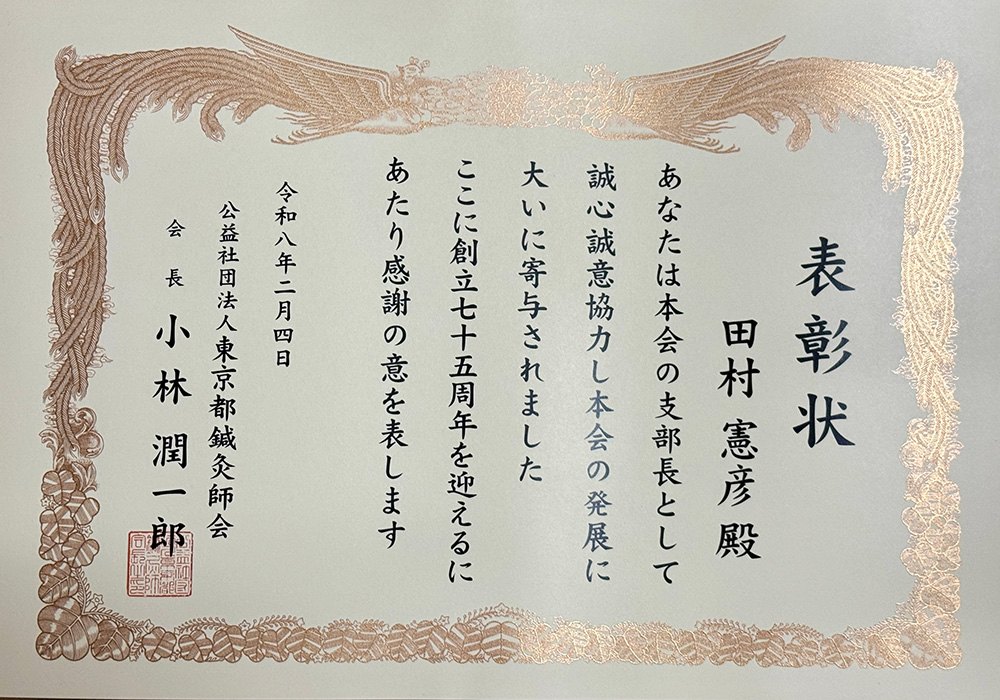 表彰状
田村 憲彦 殿
あなたは本会の支部長として
誠心誠意協力し本会の発展に
大いに寄与されました
ここに創立七十五周年を迎えるに
あたり感謝の意を表します
令和八年二月四日
公益社団法人東京都鍼灸師会
会長 小林 潤一郎